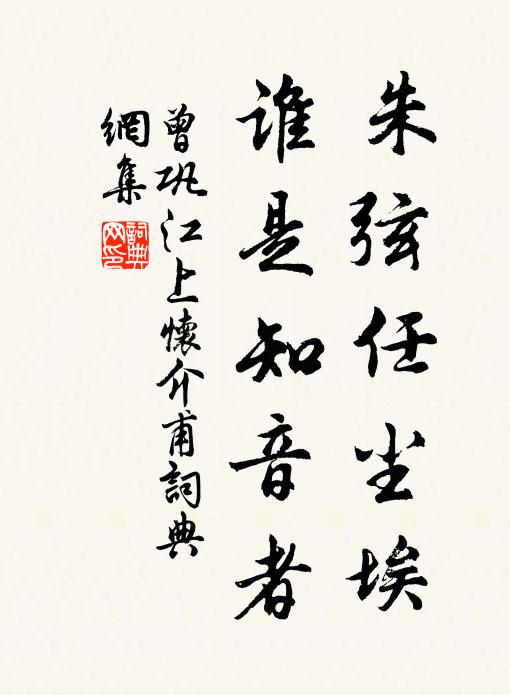 朱弦任尘埃
谁是知音者
曾巩江上懷介甫詞典
網集
詞典
网印